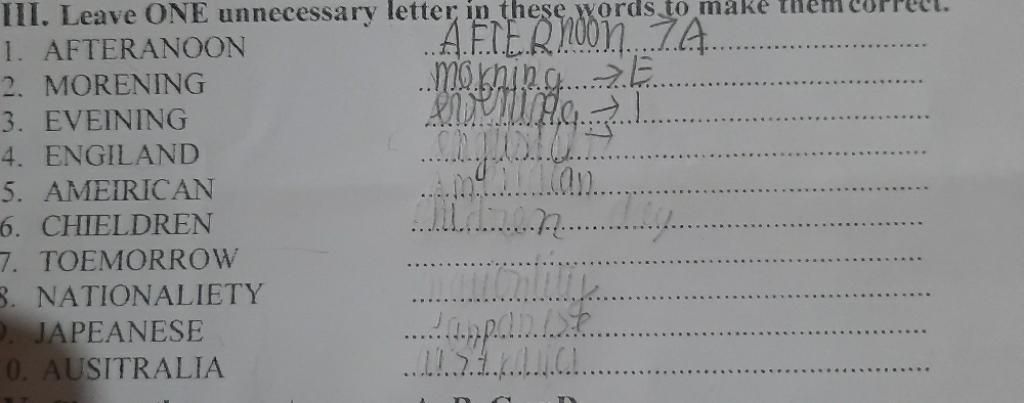 III. Leave ONE unnecessary letter in these words to make them correct.
1. AFTERANOON AFTERnoon → A
2. MORENING morning → E
3. EVEINING evening → I
4. ENGILAND
5. AMEIRICAN
6. CHIELDREN children
7. TOEMORROW
8. NATIONALIETY
9. JAPEANESE
0. AUSITRALIA